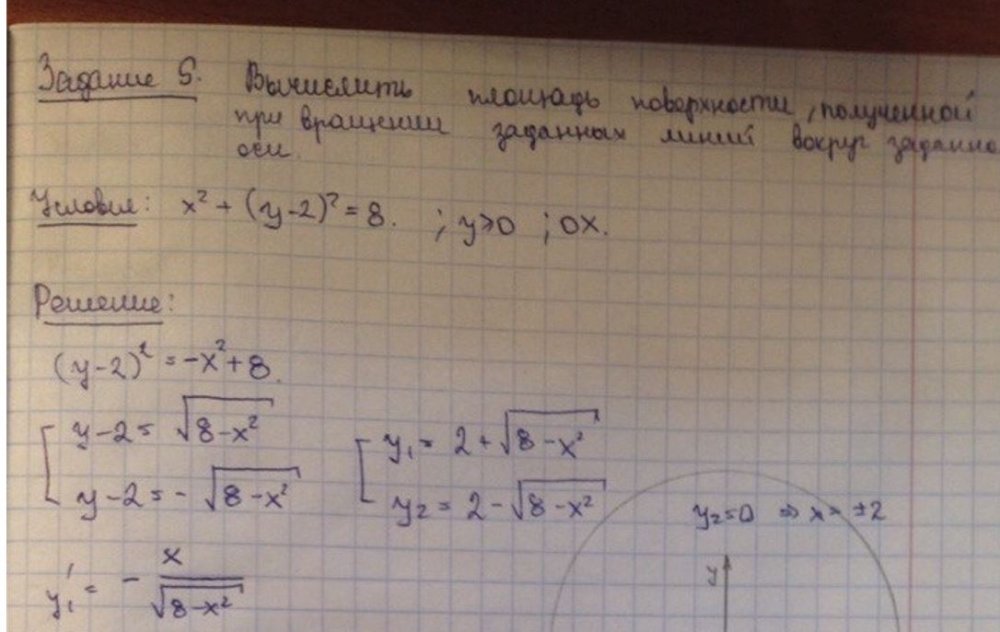 Задание 5. Вычислить площадь поверхности, полученной
при вращении заданных линий вокруг заданно
оси.
Условия: x² + (y-2)² = 8. ; y≥0 ; OX.
Решение:
(y-2)² = -x² + 8.
y-2 = √(8-x²) y₁ = 2 + √(8-x²)
y-2 = -√(8-x²) y₂ = 2 - √(8-x²)
y₂=0 ⇒ x = ±2
y₁' = - x/√(8-x²)
y